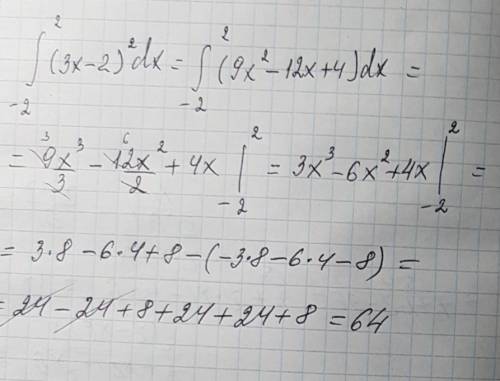 ∫₋₂² (3x-2)² dx = ∫₋₂² (9x² - 12x + 4) dx =
= 9x³/3 - 12x²/2 + 4x |₋₂² = 3x³ - 6x² + 4x |₋₂² =
= 3·8 - 6·4 + 8 - (-3·8 - 6·4 - 8) =
= 24 - 24 + 8 + 24 + 24 + 8 = 64